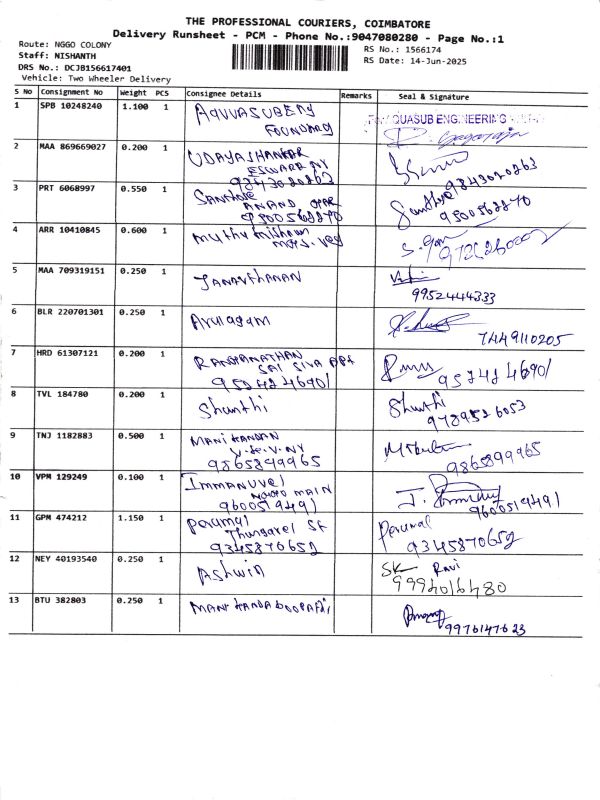 THE PROFESSIONAL COURIERS, COIMBATORE
Delivery Runsheet - PCM - Phone No.:9047080280 - Page No.:1
Route: NGGO COLONY
Staff: NISHANTH
DRS No.: DCJB156617401
Vehicle: Two Wheeler Delivery
RS No.: 1566174
RS Date: 14-Jun-2025
S No Consignment No Weight PCS Consignee Details Remarks Seal & Signature
1 SPB 10248240 1.100 1 AQUUASUBENG
FOUNDARY
QUASUB ENGINEERING
2 MAA 869669027 0.200 1 UDAYASHANKAR
ESWARR NY
9843020263 9843020263
3 PRT 6068997 0.550 1 SANTHOSE
ANAND APAR
9500562270 Santhose 9500562270
4 ARR 10410845 0.600 1 muthu krishnan
5 MAA 709319151 0.250 1 JANARTHANAN
9952444333
6 BLR 220701301 0.250 1 Arulagam
7449110205
7 HRD 61307121 0.200 1 RANGANATHAN
SAI SIVA APT
9524246901 9524246901
8 TVL 184780 0.200 1 Shanthi Shanthi
9789526053
9 TNJ 1182883 0.500 1 MANIKANDAN
V.K.V.NY
9865899965 9865899965
10 VPM 129249 0.100 1 Immanuvel
NGGO MAIN
9600519491 9600519491
11 GPM 474212 1.150 1 Perumal Perumal
Thungavel St
9345870652 9345870652
12 NEY 40193540 0.250 1 Ashwin SK Ravi
9994016480
13 BTU 382803 0.250 1 MANIKANDABOOPATHI
9976147623